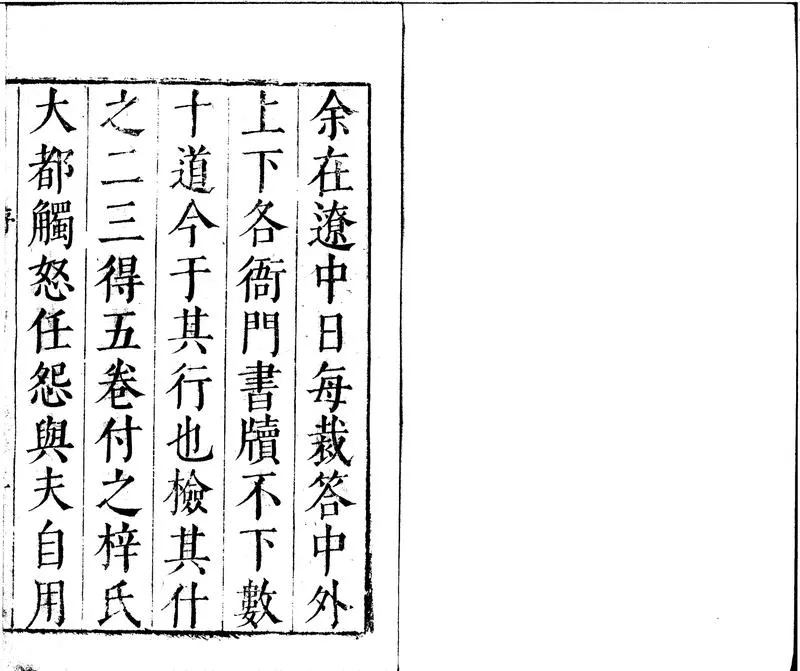 余在遼中日每裁答中外
上下各衙門書牘不下數
十道今于其行也檢其什
之二三得五卷付之梓氏
大都觸怒任怨與夫自用
序